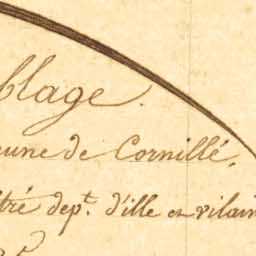 blage.
mune de Cornillé,
tré dep.t d'ille en vilain